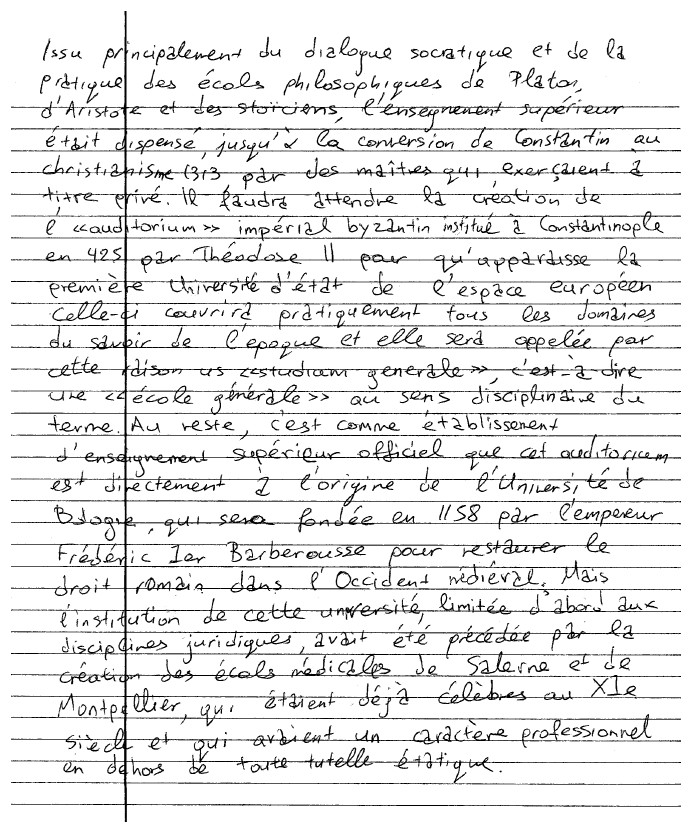 Issu principalement du dialogue socratique et de la
pratique des écols philosophiques de Platon,
d'Aristote et des stoïciens, l'enseignement supérieur
était dispensé, jusqu'à la conversion de Constantin au
christianisme (313 par des maîtres qui exerçaient à
titre privé. Il faudra attendre la création de
l'«auditorium» impérial byzantin institué à Constantinople
en 425 par Théodose II pour qu'apparaisse la
première Université d'état de l'espace européen
Celle-ci couvrira pratiquement tous les domaines
du savoir de l'époque et elle sera appelée par
cette raison us «studium generale», c'est-à-dire
une «école générale» au sens disciplinaire du
terme. Au reste, c'est comme établissement
d'enseignement supérieur officiel que cet auditorium
est directement à l'origine de l'Université de
Bologne, qui sera fondée en 1158 par l'empereur
Frédéric Ier Barberousse pour restaurer le
droit romain dans l'Occident médiéval. Mais
l'institution de cette université, limitée d'abord aux
disciplines juridiques, avait été précédée par la
création des écols médicales de Salerne et de
Montpellier, qui étaient déjà célèbres au XIe
siècle et qui avaient un caractère professionnel
en dehors de toute tutelle étatique.